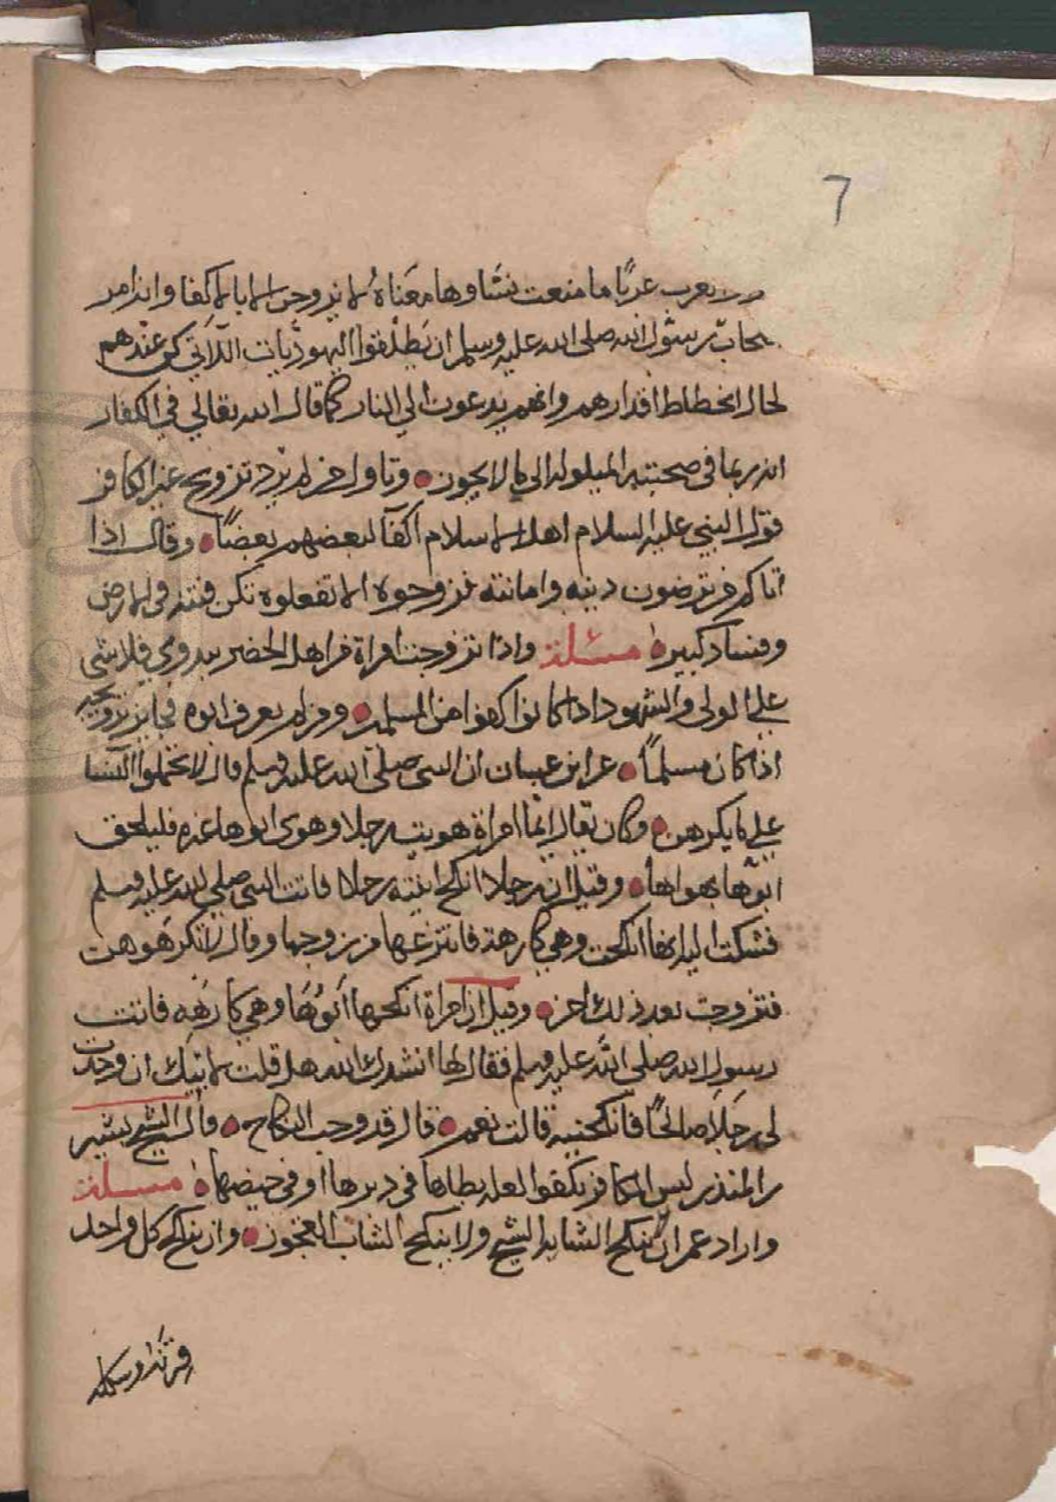 7
العرب عربًا ما منعت نساوها معناه لا تزوجن الا بالاكفا وانه امر
رسول الله صلى الله عليه وسلم ان يطلقوا اليهوديات اللاتي كن عندهم
لحال انحطاط اقدارهم وانهم يدعون الى النار كما قال الله تعالى في الكفار
انه ربما في صحبتهم الميلولة الى ما لا يجوز وتاول من لم يرد تزويج غير الكافر
قول النبي عليه السلام اهل الاسلام اكفا لبعضهم بعضًا وقال اذا
اتاكم من ترضون دينه وامانته فزوجوه الا تفعلوه تكن فتنة في الارض
وفساد كبير مسئلة واذا تزوجت امراة من اهل الحضر ببدوي فلا شي
على الولي والشهود اذا كانوا كفوا من المسلمين ومن لم يعرف ابوه فجايز تزويجه
اذا كان مسلمًا عن ابن عباس ان النبي صلى الله عليه وسلم قال لا تحملوا النسا
على ما يكرهن وكان يقال ايما امراة هويت رجلا وهوى ابوها غيره فليلحق
ابوها بهواها وقيل ان رجلا انكح ابنته رجلا فاتت النبي صلى الله عليه وسلم
فشكت اليه انها انكحت وهي كارهة فانتزعها من زوجها وقال لا تكرهوهن
فتزوجت بعد ذلك اخر وقيل ان امراة انكحها ابوها وهي كارهه فاتت
رسول الله صلى الله عليه وسلم فقال لها انشدك الله هل قلت لابيك ان وجدت
لي رجلا صالحًا فانكحنيه قالت نعم قال قد وجب النكاح قال الشيخ بشير
بن المنذر ليس الحاكم فز بكفوا لعله يطاها في دبرها او في حيضها مسئلة
واراد عمر ان تنكح الشابة الشيخ ولا ينكح الشاب العجوز وان ينكح كل واحد